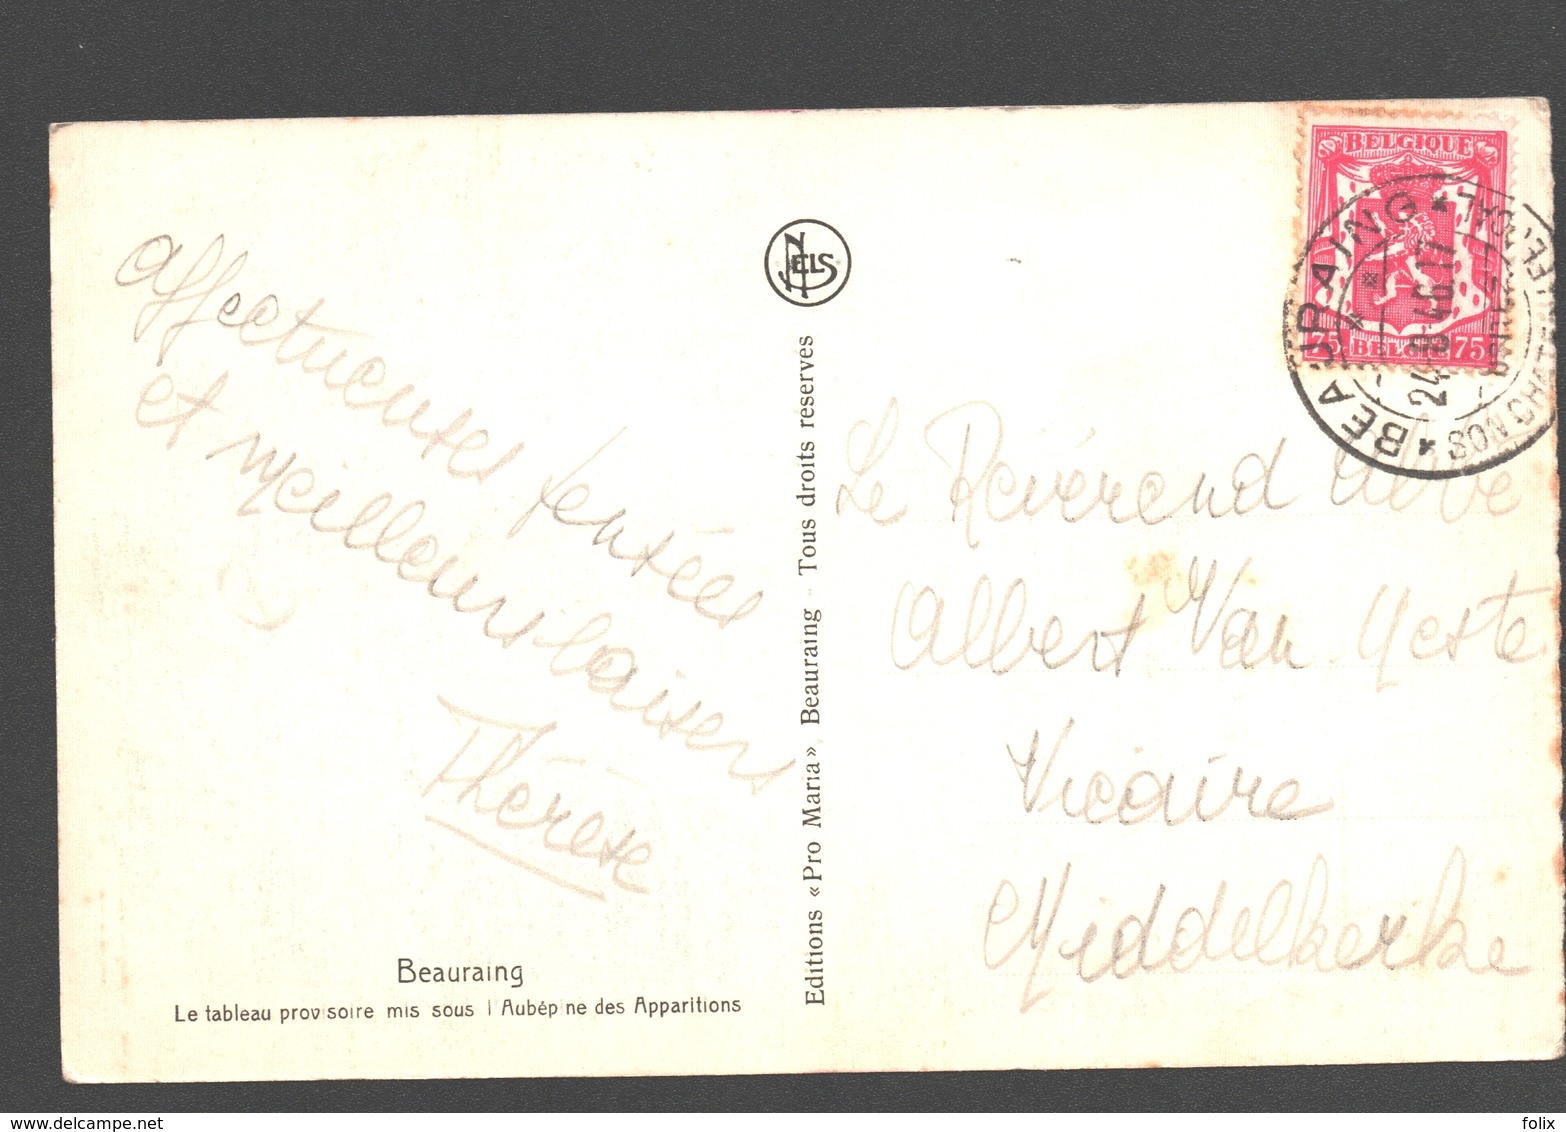 affectueuses pensées
et meilleurs baisers
Thérèse
Beauraing
Le tableau provisoire mis sous l'Aubépine des Apparitions
NELS
Editions «Pro Maria» Beauraing - Tous droits reserves
BELGIQUE
75 BELGIE 75
BEAURAING
24-8-46.17
NOS CHAT
Le Révérend Abbé
Albert Van Yeste
Vicaire
Middelkerke
www.delcampe.net
folix